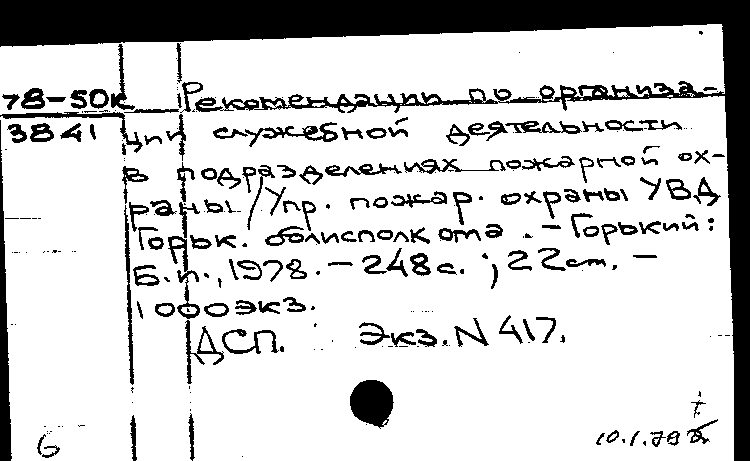 78-50к Рекомендации по организа-
3841 ции служебной деятельности
в подразделениях пожарной ох-
раны / Упр. пожар. охраны УВД
Горьк. облисполкома. - Горький:
Б.и., 1978. - 248с.; 22см. -
1000экз.
ДСП. Экз. N 417.
6